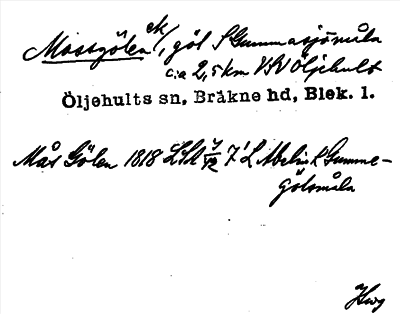 Mossgölen ek/, göl S Gummasjömåla
c:a 2,5 km VSV Öljehult
Öljehults sn, Bräkne hd, Blek. 1.
Mås Gölen 1818 LSA
Gumme-
götsmåla
Hwg